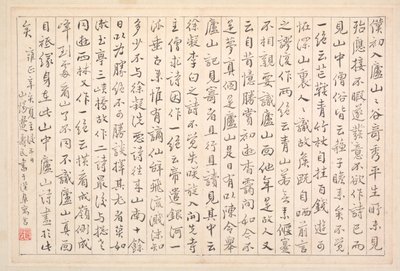 僕初入廬山山谷奇秀平生所未見
殆應接不暇遂發意不欲作詩已而
見山中僧俗皆云蘇子瞻來矣不覺作
一絕云芒鞵青竹杖自挂百錢遊可
怪深山裏人人識故侯既自哂前言
之謬復作兩絕云青山若無素偃蹇
不相親要識廬山面他年是故人又
云自昔憶清賞初游杳靄間如今不
是夢真個是廬山是日有以陳令舉
廬山記見寄者且行且讀見其中云
徐凝李白之詩不覺失笑旋入開先寺
主僧求詩因作一絕云帝遣銀河一
派垂古來惟有謫仙辭飛流濺沫知
多少不與徐凝洗惡詩往來山南十餘
日以為勝絕不可勝談擇其尤者莫如
漱玉亭三峽橋故作二詩最後與摠老
同遊西林又作一絕云橫看成嶺側成
峰到處看山了不同不識廬山真面
目祇緣身在此山中廬山詩盡於此
矣 雍正